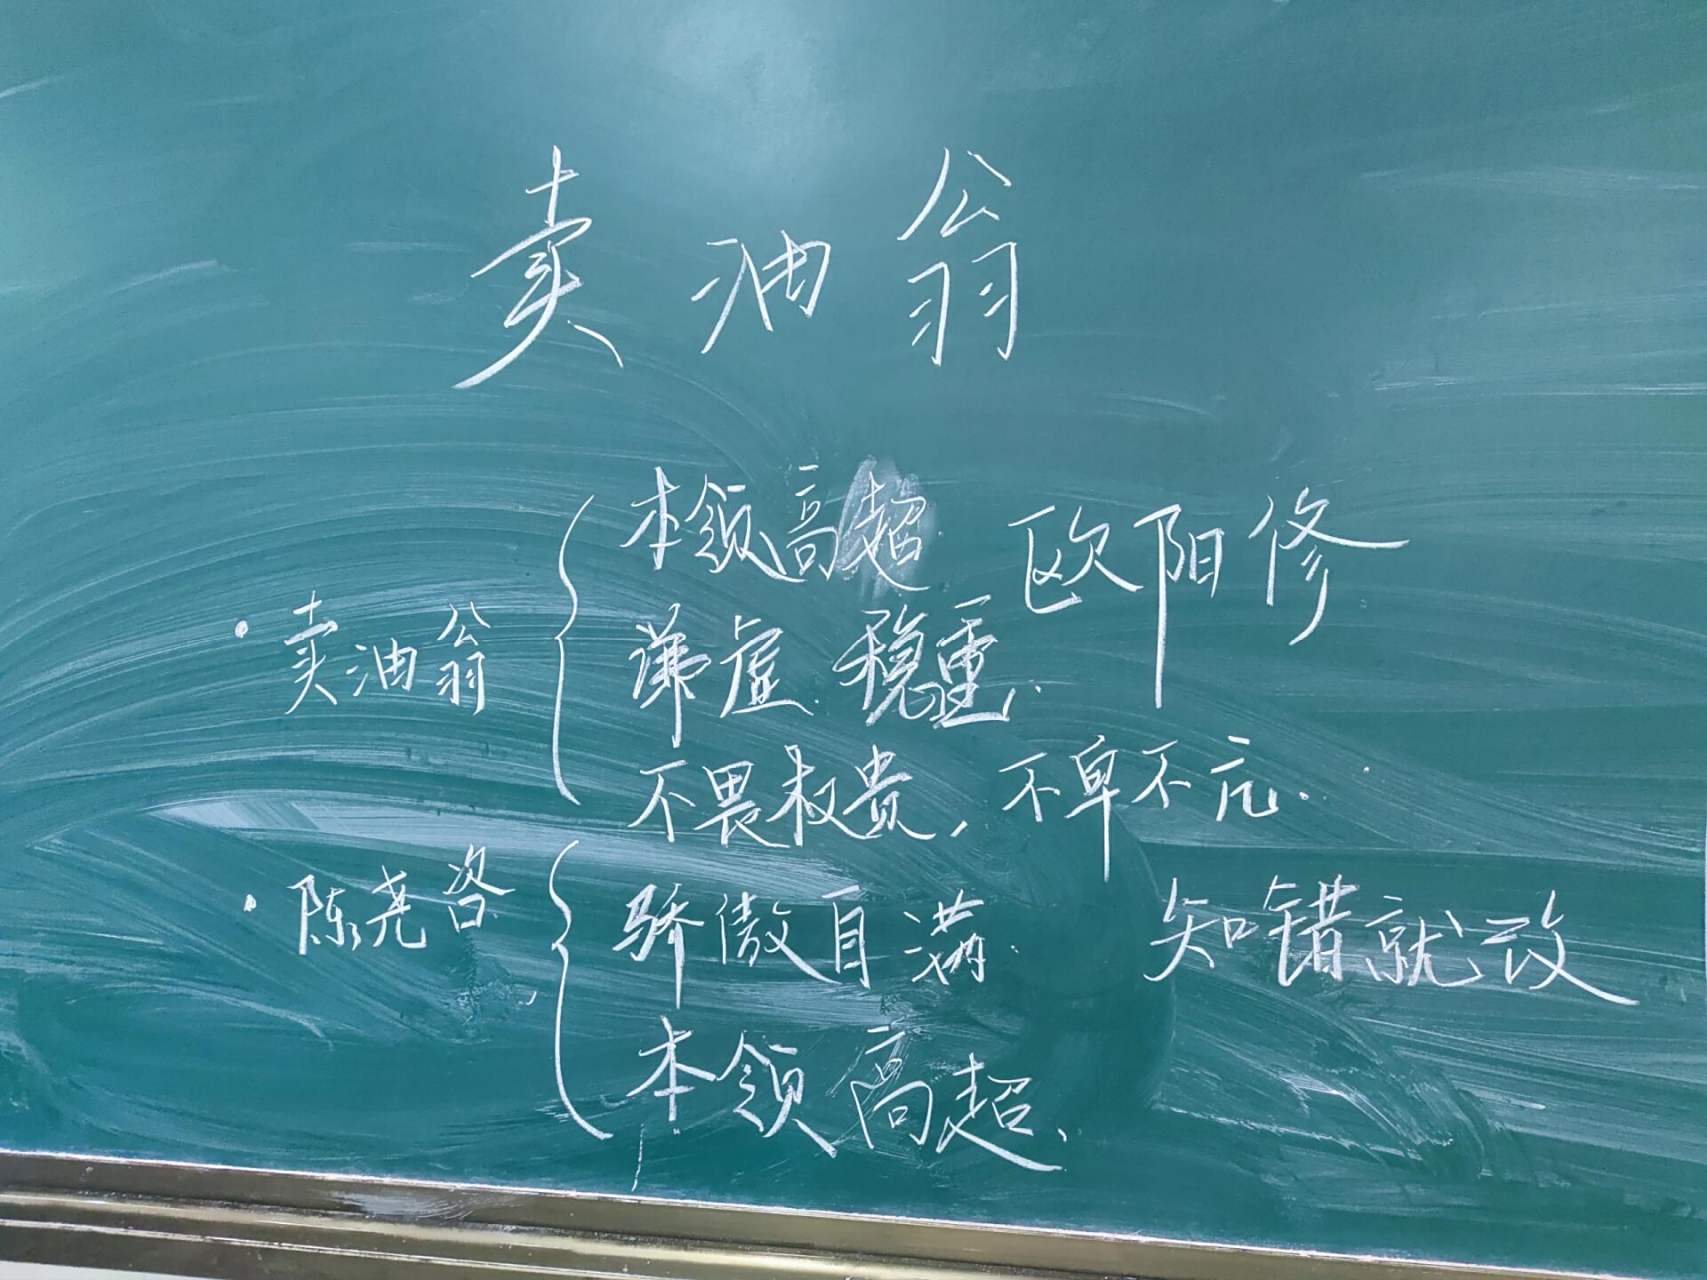 卖油翁
本领高超 欧阳修
·卖油翁 谦虚.稳重.
不畏权贵,不卑不亢.
·陈尧咨 骄傲自满. 知错就改
本领高超、